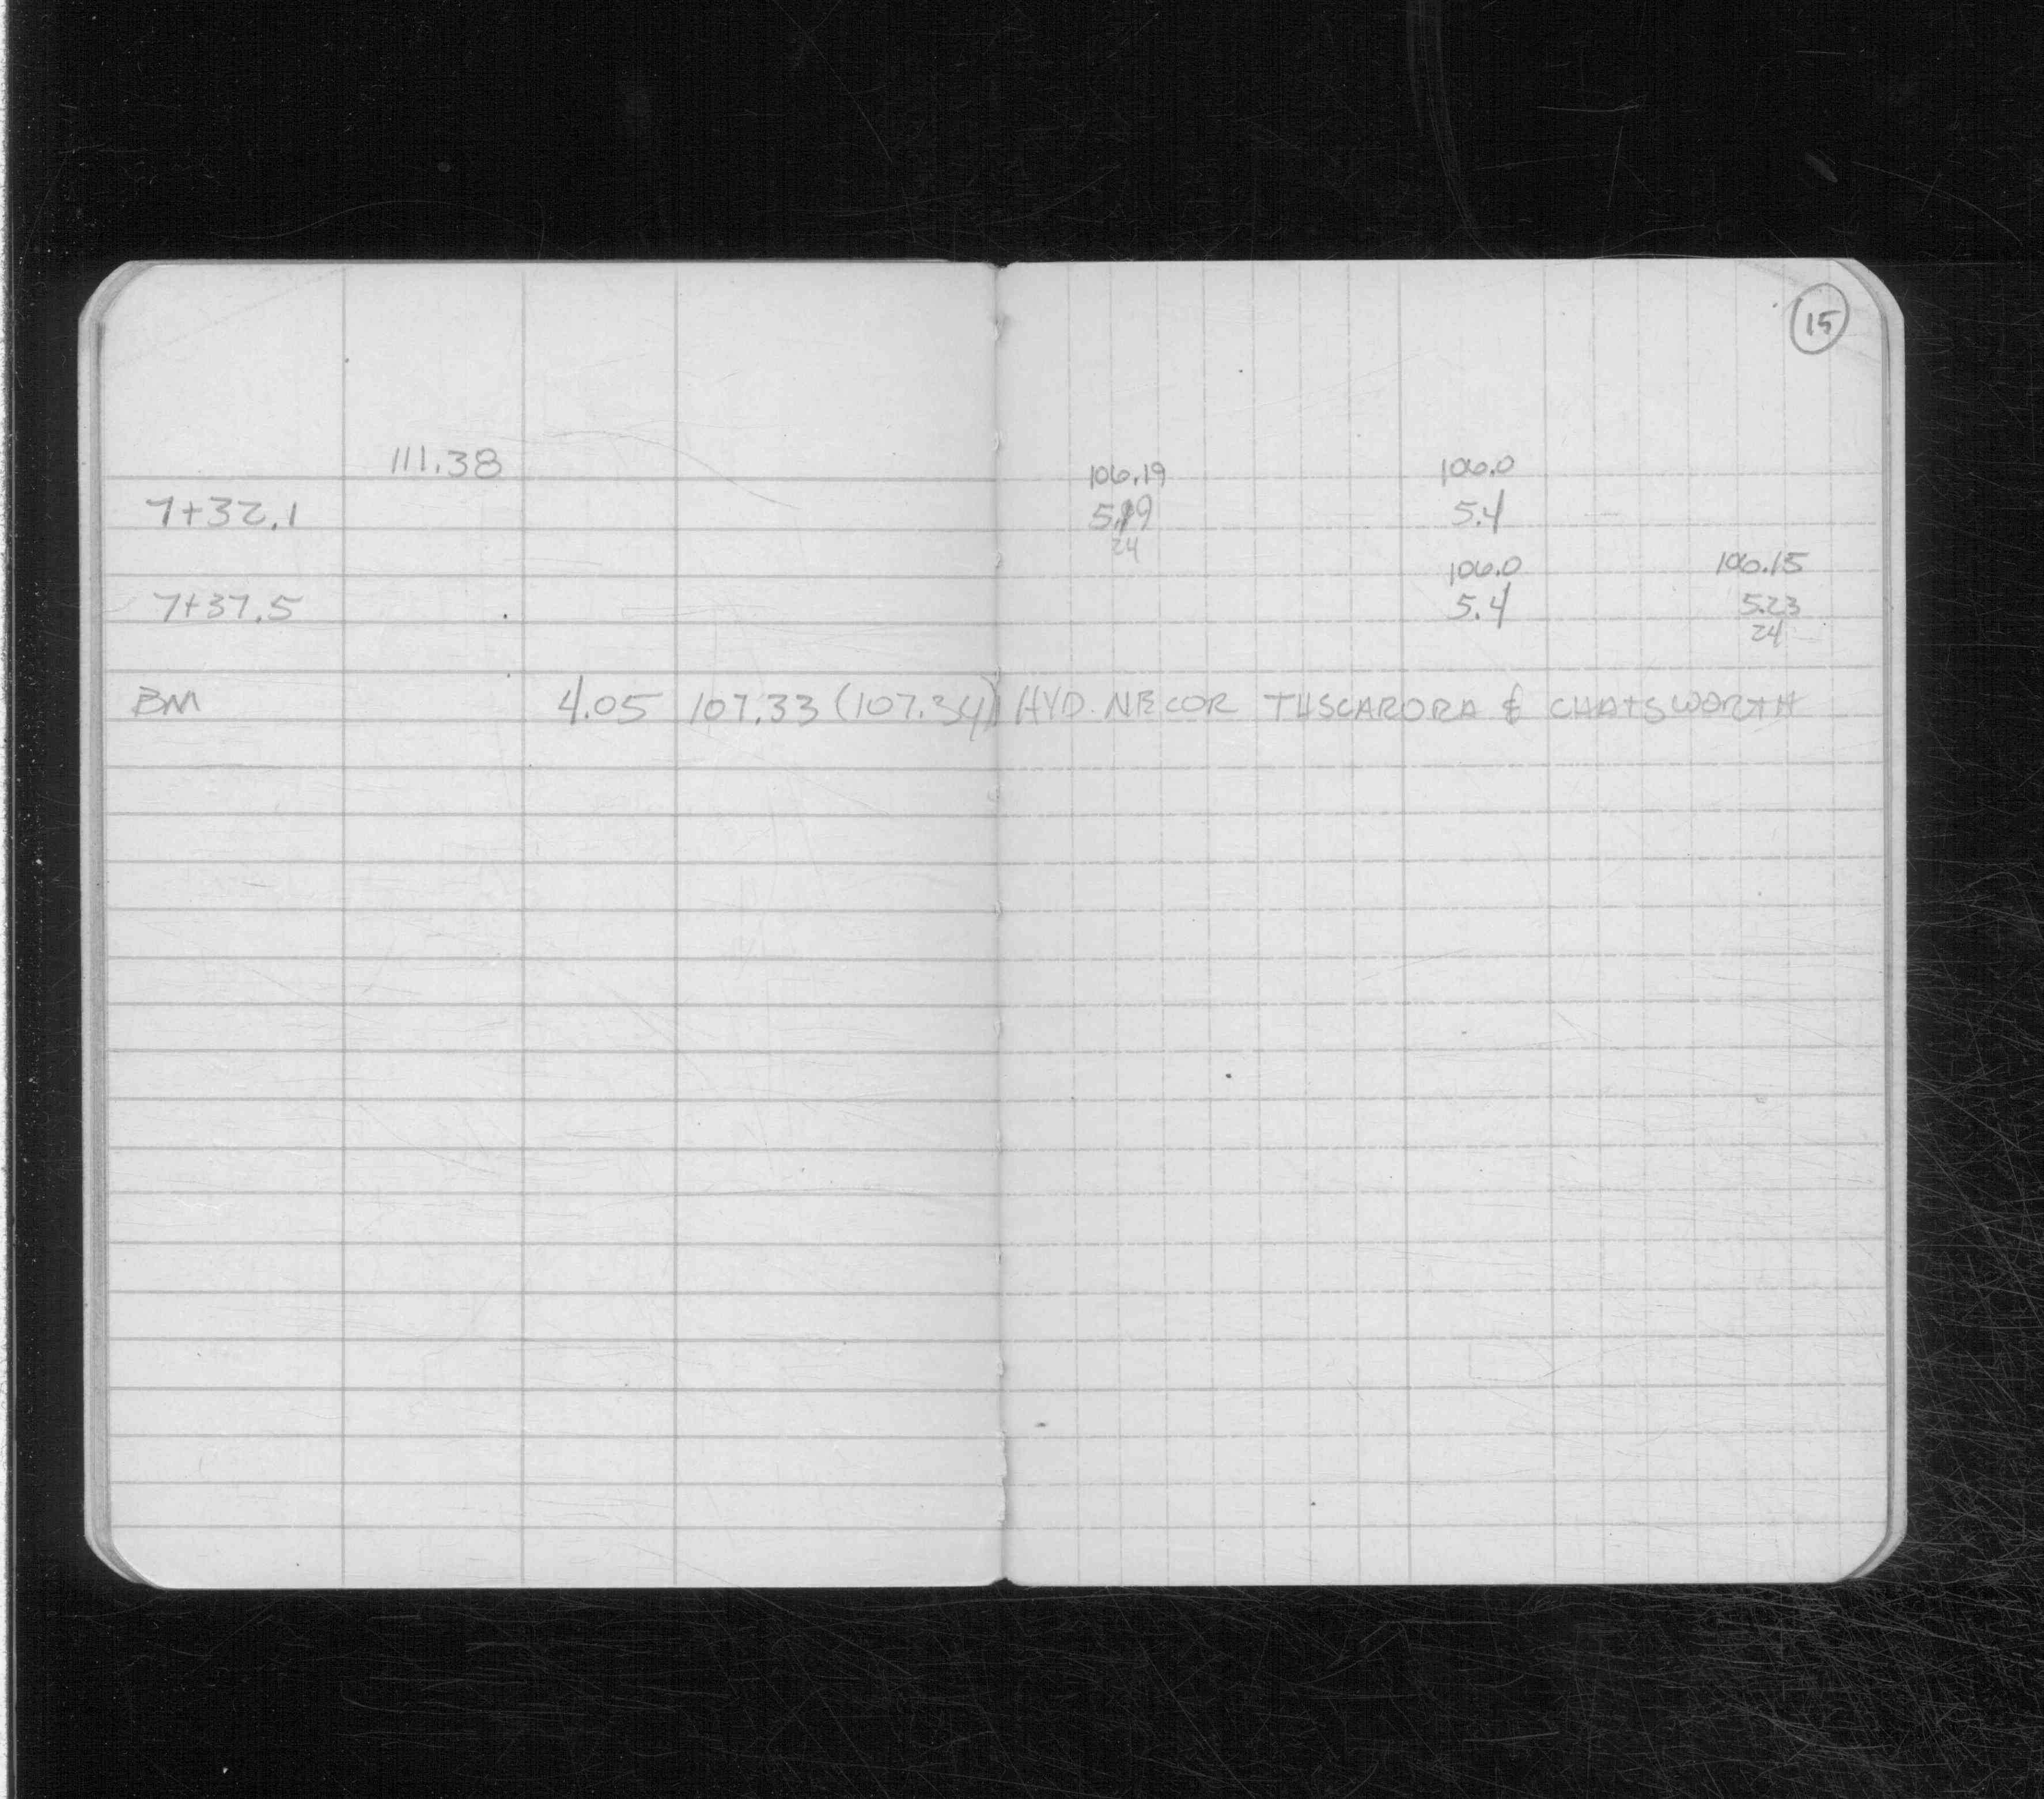 15
111.38 106.19 106.0
7+32.1 5.19 5.4
24
106.0 106.15
7+37.5 5.4 5.23
24
BM 4.05 107.33 (107.34) HYD. NE COR TUSCARORA & CHATSWORTH